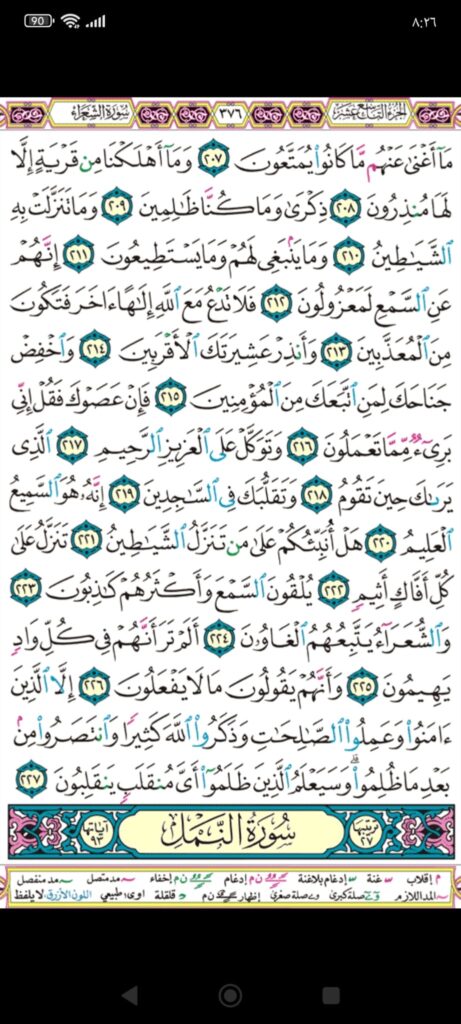 90
٨:٢٦
الجزء التاسع عشر
٣٧٦
سورة الشعراء
مَآ أَغْنَىٰ عَنْهُم مَّا كَانُوا۟ يُمَتَّعُونَ ٢٠٧ وَمَآ أَهْلَكْنَا مِن قَرْيَةٍ إِلَّا
لَهَا مُنذِرُونَ ٢٠٨ ذِكْرَىٰ وَمَا كُنَّا ظَٰلِمِينَ ٢٠٩ وَمَا تَنَزَّلَتْ بِهِ
ٱلشَّيَٰطِينُ ٢١٠ وَمَا يَنۢبَغِى لَهُمْ وَمَا يَسْتَطِيعُونَ ٢١١ إِنَّهُمْ
عَنِ ٱلسَّمْعِ لَمَعْزُولُونَ ٢١٢ فَلَا تَدْعُ مَعَ ٱللَّهِ إِلَٰهًا ءَاخَرَ فَتَكُونَ
مِنَ ٱلْمُعَذَّبِينَ ٢١٣ وَأَنذِرْ عَشِيرَتَكَ ٱلْأَقْرَبِينَ ٢١٤ وَٱخْفِضْ
جَنَاحَكَ لِمَنِ ٱتَّبَعَكَ مِنَ ٱلْمُؤْمِنِينَ ٢١٥ فَإِنْ عَصَوْكَ فَقُلْ إِنِّى
بَرِىٓءٌ مِّمَّا تَعْمَلُونَ ٢١٦ وَتَوَكَّلْ عَلَى ٱلْعَزِيزِ ٱلرَّحِيمِ ٢١٧ ٱلَّذِى
يَرَىٰكَ حِينَ تَقُومُ ٢١٨ وَتَقَلُّبَكَ فِى ٱلسَّٰجِدِينَ ٢١٩ إِنَّهُۥ هُوَ ٱلسَّمِيعُ
ٱلْعَلِيمُ ٢٢٠ هَلْ أُنَبِّئُكُمْ عَلَىٰ مَن تَنَزَّلُ ٱلشَّيَٰطِينُ ٢٢١ تَنَزَّلُ عَلَىٰ
كُلِّ أَفَّاكٍ أَثِيمٍ ٢٢٢ يُلْقُونَ ٱلسَّمْعَ وَأَكْثَرُهُمْ كَٰذِبُونَ ٢٢٣
وَٱلشُّعَرَآءُ يَتَّبِعُهُمُ ٱلْغَاوُۥنَ ٢٢٤ أَلَمْ تَرَ أَنَّهُمْ فِى كُلِّ وَادٍ
يَهِيمُونَ ٢٢٥ وَأَنَّهُمْ يَقُولُونَ مَا لَا يَفْعَلُونَ ٢٢٦ إِلَّا ٱلَّذِينَ
ءَامَنُوا۟ وَعَمِلُوا۟ ٱلصَّٰلِحَٰتِ وَذَكَرُوا۟ ٱللَّهَ كَثِيرًا وَٱنتَصَرُوا۟ مِنۢ
بَعْدِ مَا ظُلِمُوا۟ ۗ وَسَيَعْلَمُ ٱلَّذِينَ ظَلَمُوٓا۟ أَىَّ مُنقَلَبٍ يَنقَلِبُونَ ٢٢٧
ترتيبها ٢٧
سُورَةُ النَّمْل
آياتها ٩٣
م إقلاب غنة إدغام بلاغنة ن م إدغام ن م إخفاء مد متصل مد منفصل
المد اللازم صلة كبرى صلة صغرى إظهار ن م قلقلة اوى: طبيعي اللون الأزرق: لا يلفظ